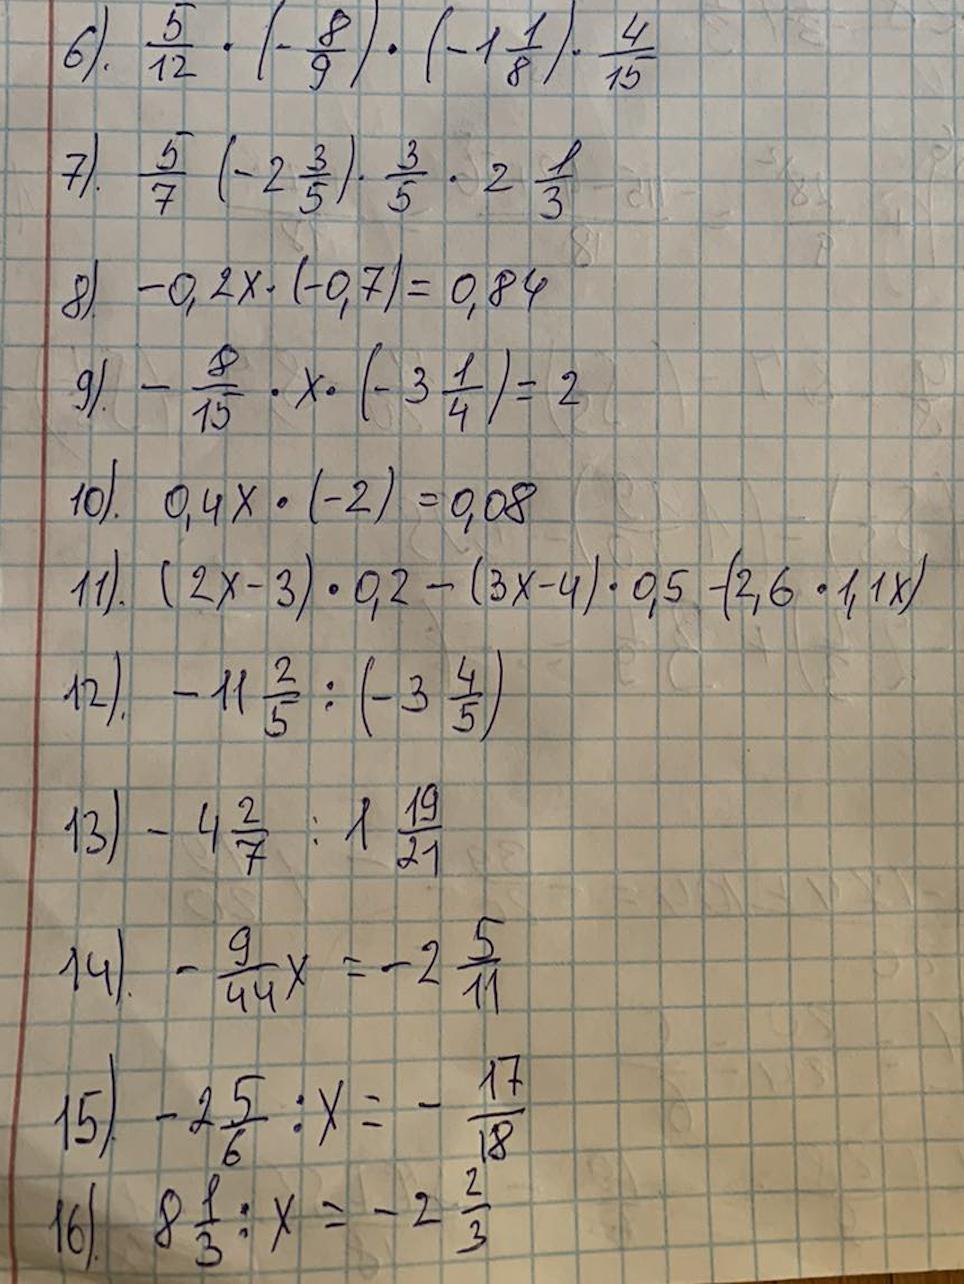 6). 5/12 · (- 8/9) · (-1 1/8) · 4/15
7). 5/7 (-2 3/5) · 3/5 · 2 1/3
8) -0,2x · (-0,7) = 0,84
9). - 8/15 · x · (-3 1/4) = 2
10). 0,4x · (-2) = 0,08
11). (2x-3) · 0,2 - (3x-4) · 0,5 - (2,6 · 1,1x)
12). -11 2/5 : (-3 4/5)
13) - 4 2/7 : 1 19/21
14). - 9/44 x = -2 5/11
15) -2 5/6 : x = - 17/18
16). 8 1/3 : x = -2 2/3